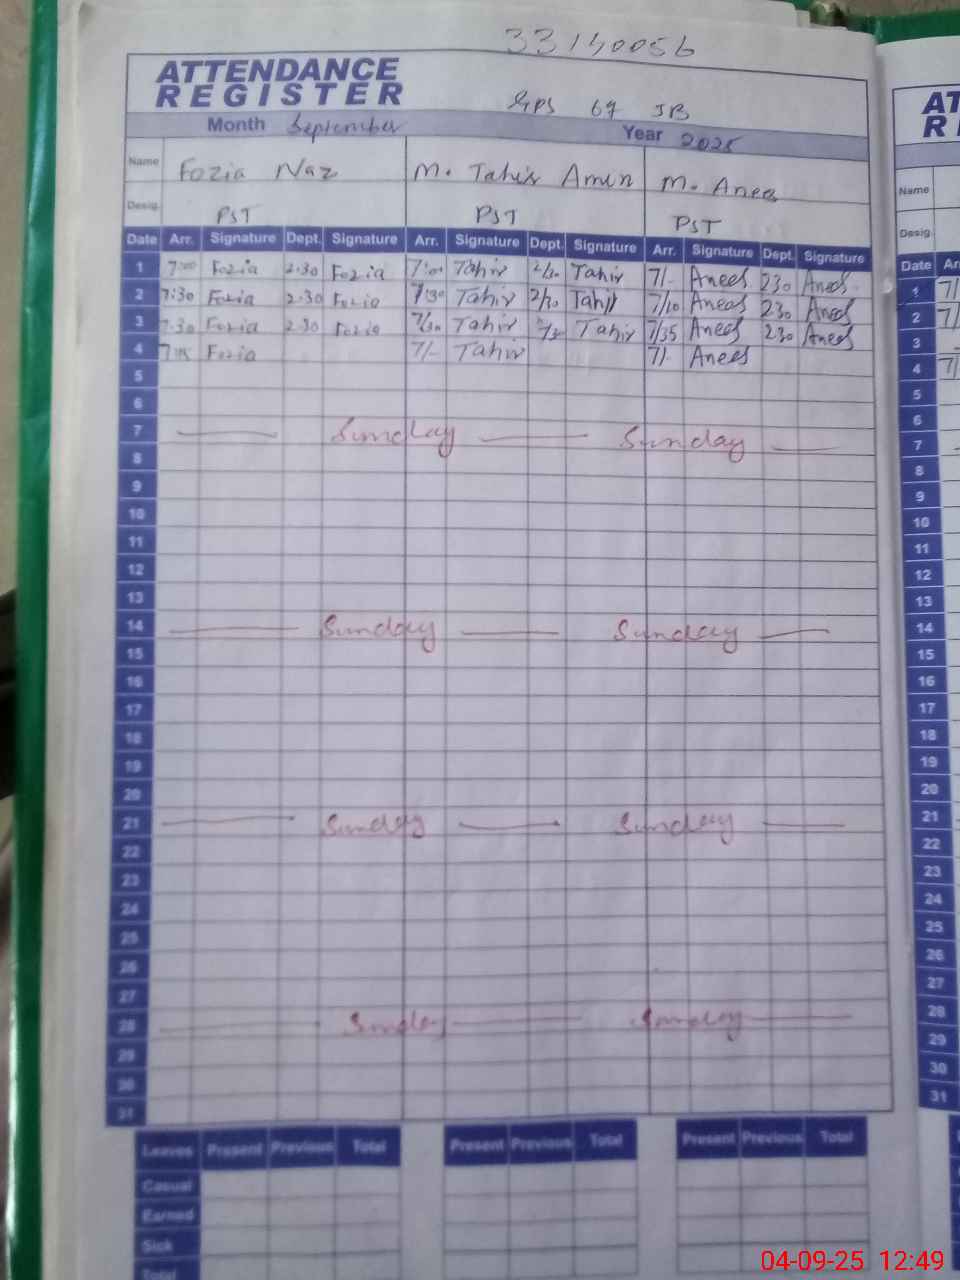 33140056
ATTENDANCE
REGISTER
GPS 67 JB
Month September Year 2025
Name Fozia Naz M. Tahir Amin M. Anees
Desig. PST PST PST
Date Arr. Signature Dept. Signature Arr. Signature Dept. Signature Arr. Signature Dept. Signature
1 7:00 Fozia 2.30 Fozia 7:00 Tahir 2/30 Tahir 7/- Anees 230 Anees
2 7:30 Fozia 2.30 Fozia 7:30 Tahir 2/30 Tahir 7/10 Anees 230 Anees
3 7.30 Fozia 2.30 Fozia 7/30 Tahir Tahir 7/35 Anees 230 Anees
4 7:15 Fozia 7/- Tahir 7/- Anees
5
6
7 Sunday Sunday
8
9
10
11
12
13
14 Sunday Sunday
15
16
17
18
19
20
21 Sunday Sunday
22
23
24
25
26
27
28 Sunday Sunday
29
30
31
Leaves Present Previous Total Present Previous Total Present Previous Total
Casual
Earned
Sick
Total
AT
R
Name
Desig.
Date Ar
1 7/
2 7/
3
4 7/
5
6
7
8
9
10
11
12
13
14
15
16
17
18
19
20
21
22
23
24
25
26
27
28
29
30
31
04-09-25 12:49